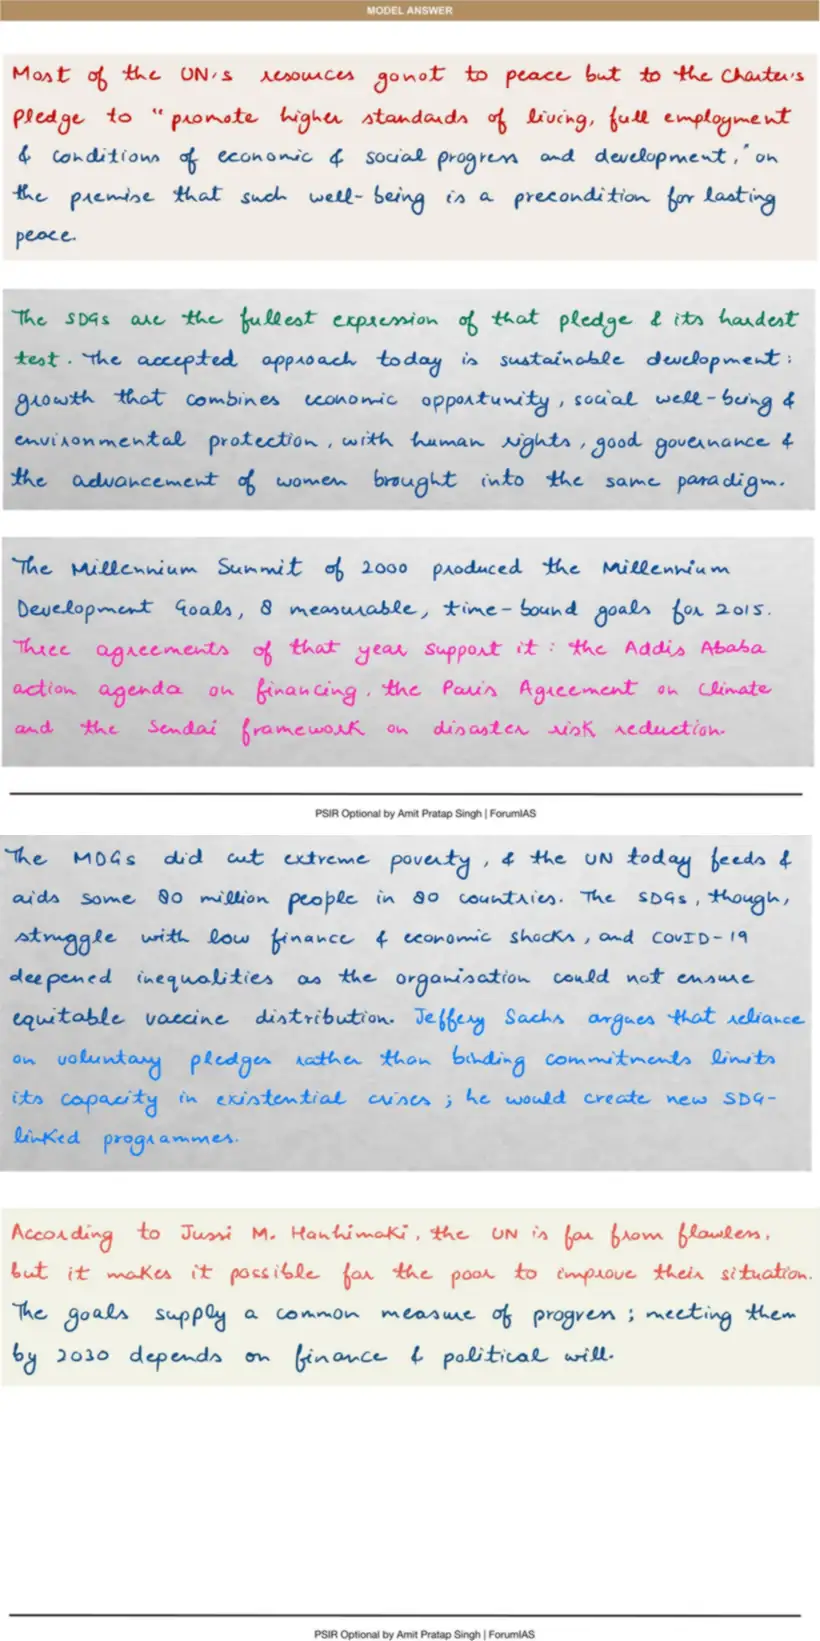 MODEL ANSWER
Most of the UN's resources go not to peace but to the Charter's
pledge to "promote higher standards of living, full employment
& conditions of economic & social progress and development," on
the premise that such well-being is a precondition for lasting
peace.
The SDGs are the fullest expression of that pledge & its hardest
test. The accepted approach today is sustainable development:
growth that combines economic opportunity, social well-being &
environmental protection, with human rights, good governance &
the advancement of women brought into the same paradigm.
The Millennium Summit of 2000 produced the Millennium
Development Goals, 8 measurable, time-bound goals for 2015.
Three agreements of that year support it: the Addis Ababa
action agenda on financing, the Paris Agreement on Climate
and the Sendai framework on disaster risk reduction.
PSIR Optional by Amit Pratap Singh | ForumIAS
The MDGs did cut extreme poverty, & the UN today feeds &
aids some 80 million people in 80 countries. The SDGs, though,
struggle with low finance & economic shocks, and COVID-19
deepened inequalities as the organisation could not ensure
equitable vaccine distribution. Jeffery Sachs argues that reliance
on voluntary pledges rather than binding commitments limits
its capacity in existential crises; he would create new SDG-
linked programmes.
According to Jussi M. Hanhimaki, the UN is far from flawless,
but it makes it possible for the poor to improve their situation.
The goals supply a common measure of progress; meeting them
by 2030 depends on finance & political will.
PSIR Optional by Amit Pratap Singh | ForumIAS